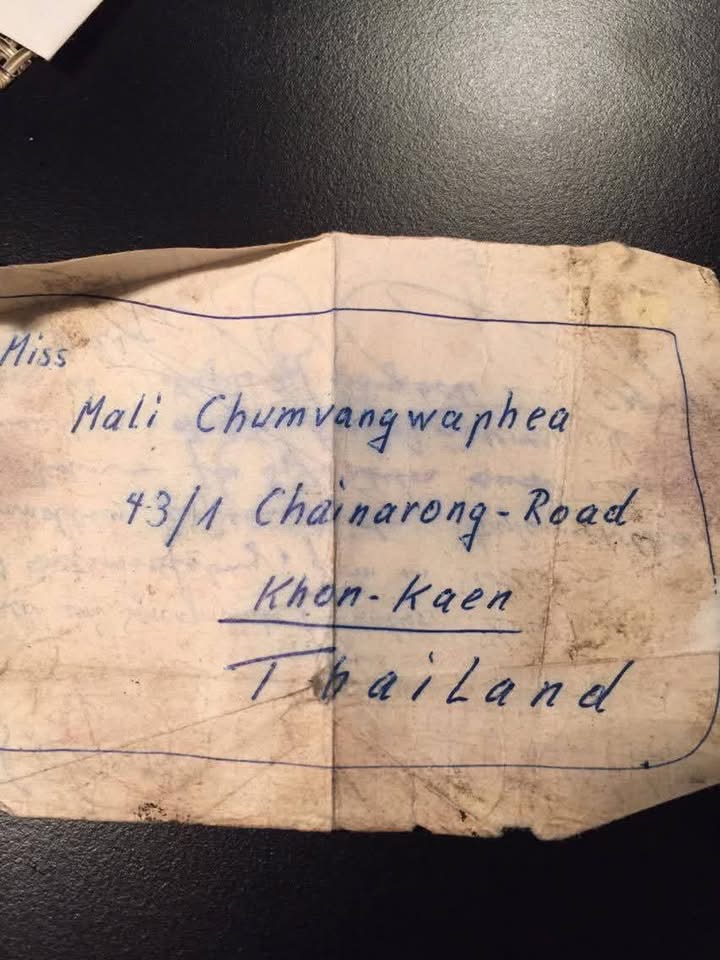 Miss
Mali Chumvangwaphea
43/1 Chainarong-Road
Khon-Kaen
Thailand